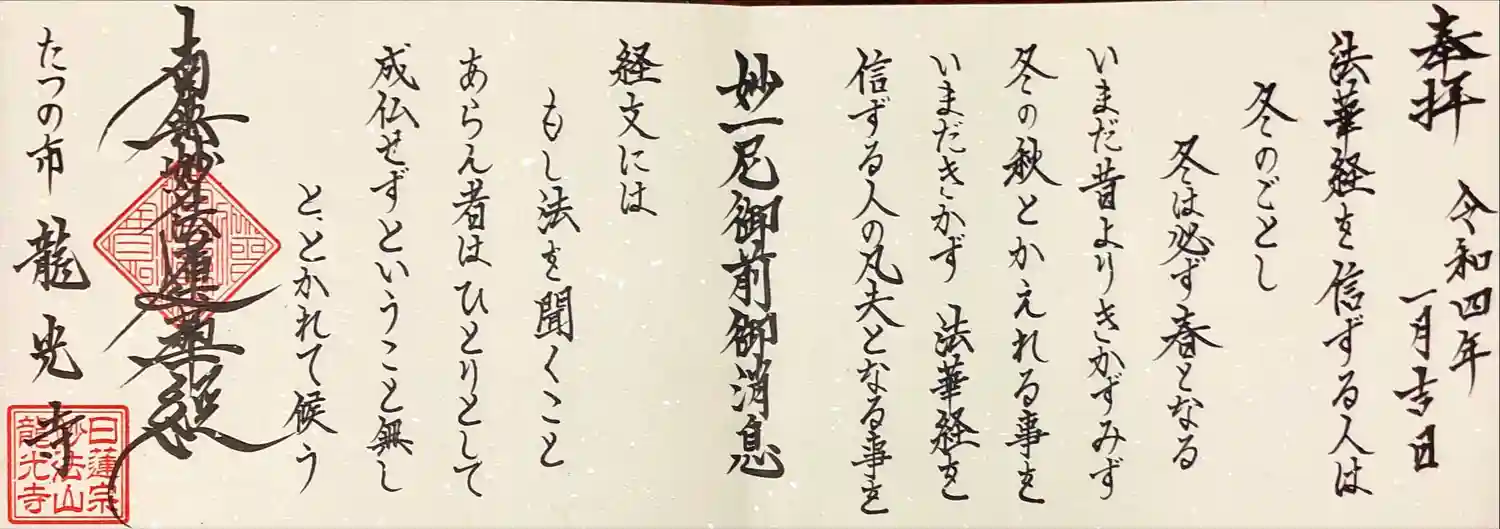 奉拝
令和四年
一月吉日
法華経を信ずる人は
冬のごとし
冬は必ず春となる
いまだ昔よりきかずみず
冬の秋とかえれる事を
いまだきかず 法華経を
信ずる人の凡夫となる事を
妙一尼御前御消息
経文には
もし法を聞くこと
あらん者はひとりとして
成仏せずということ無し
と、とかれて候う
南無妙法蓮華経
たつの市 龍光寺
日蓮宗
妙法山
龍光寺